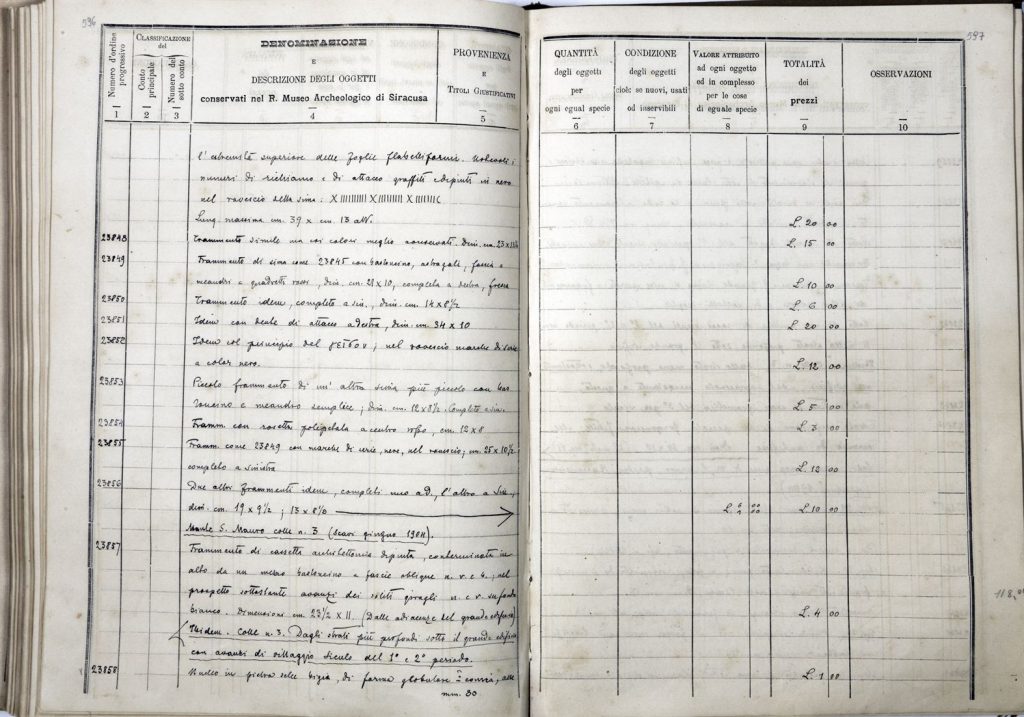 596
Numero d'ordine progressivo
1
CLASSIFICAZIONE del
Conto principale
2
Numero del sotto conto
3
DENOMINAZIONE
E
DESCRIZIONE DEGLI OGGETTI
conservati nel R. Museo Archeologico di Siracusa
4
PROVENIENZA
E
TITOLI GIUSTIFICATIVI
5
l'estremità superiore delle foglie flabelliformi. Notevoli i
numeri di richiamo e di attacco graffiti e dipinti in nero
nel rovescio della sima:
Lung. massima cm. 39 x cm. 13 alt.
23848 Frammento simile ma coi colori meglio conservati. Dim. cm. 23 x
23849 Frammento di sima come 23845 con bastoncino, astragali, fascia a
meandri e quadretti rossi, dim. cm. 21 x 10, completa a destra,
23850 Frammento idem, completo a sin., dim. cm. 14 x 8 1/2
23851 Idem con dente di attacco a destra, dim. cm. 34 x 10
23852 Idem col principio del γεῖσον; nel rovescio marche di serie
a color nero.
23853 Piccolo frammento di un' altra sima più piccola con bas
toncino e meandro semplice; dim. cm. 12 x 8 1/2. Completo a sin.
23854 Framm. con rosetta polipetala a centro rosso, cm. 12 x 8
23855 Framm. come 23849 con marche di serie, nere, nel rovescio; cm. 25 x 10 1/2
completo a sinistra
23856 Due altri frammenti idem, completi uno a d., l'altro a sin.,
dim. cm. 19 x 9 1/2; 13 x 8
Monte S. Mauro colle n. 3 (scavi giugno 1904).
23857 Frammento di cassetta architettonica dipinta, conterminata in
alto da un mezzo bastoncino a fascie oblique n. r. e b.; nel
prospetto sottostante avanzi dei soliti giragli n. e r. su fondo
bianco. Dimensioni cm. 23 1/2 x 11. (Dalle adiacenze del grande edificio)
Ibidem. Colle n. 3. Dagli strati più profondi sotto il grande edificio
con avanzi di villaggio siculo del 1° e 2° periodo.
23858 Nucleo in pietra selce bigia, di forma globulare
mm. 30
597
QUANTITÀ
degli oggetti
per
ogni egual specie
6
CONDIZIONE
degli oggetti
cioè: se nuovi, usati
od inservibili
7
VALORE ATTRIBUITO
ad ogni oggetto
ed in complesso
per le cose
di eguale specie
8
TOTALITÀ
dei
prezzi
9
OSSERVAZIONI
10
L. 20 00
L. 15 00
L. 10 00
L. 6 00
L. 20 00
L. 12 00
L. 5 00
L. 3 00
L. 12 00
L. 10 00
L. 4 00
L. 1 00